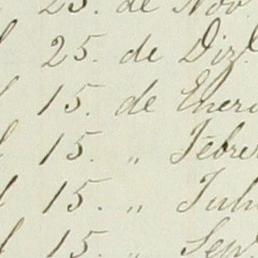 25. de Nov.
25. de Diz.
15. de Enero
15. „ Febrer
15. „ Juli
15. „ Sep.